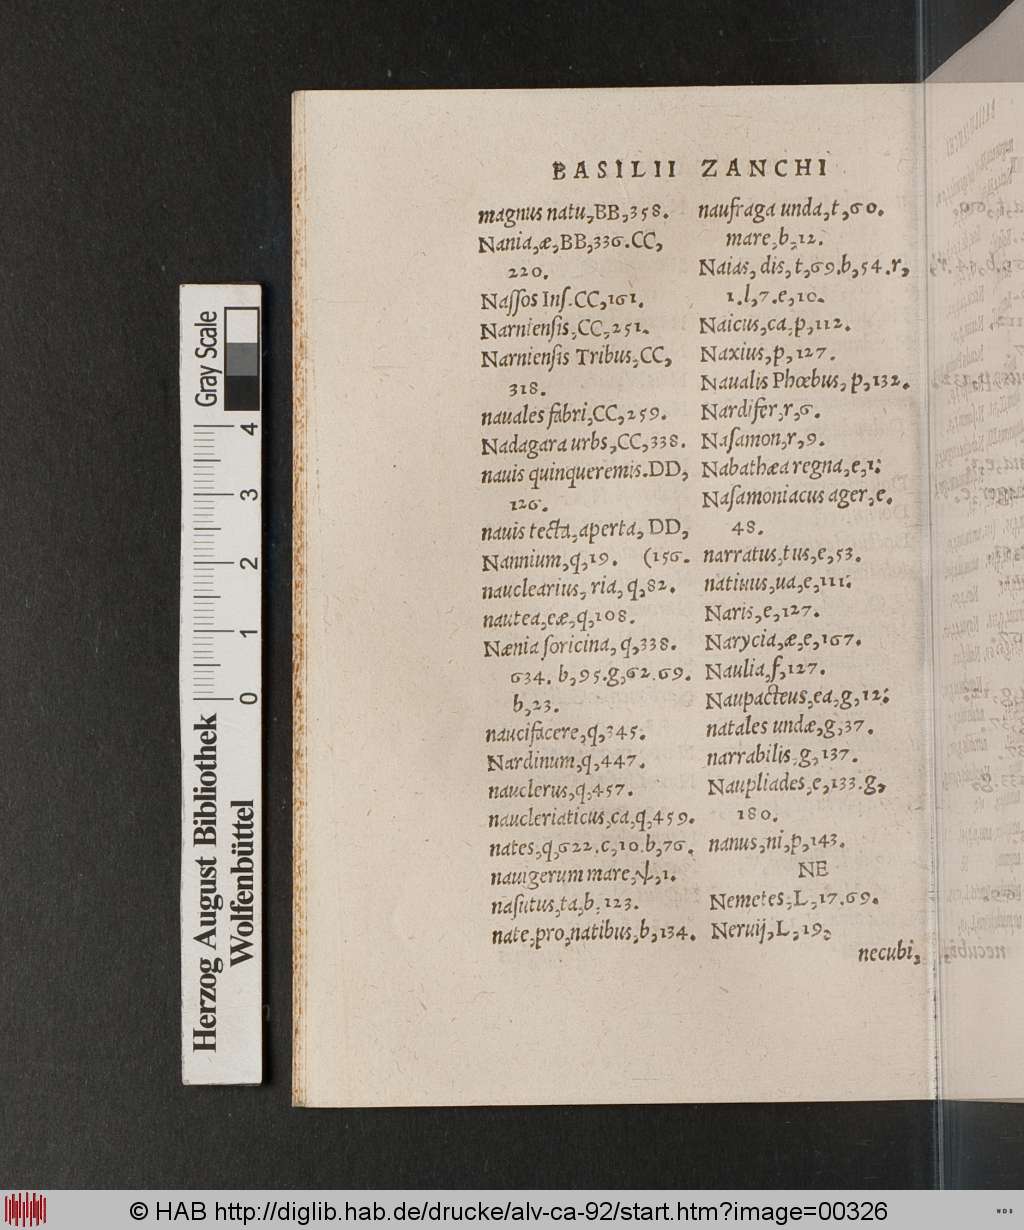 BASILII ZANCHI
magnus natu, BB, 358.
Nania, æ, BB, 336. CC,
220.
Naſſos Inſ. CC, 161.
Narnienſis, CC, 251.
Narnienſis Tribus, CC,
318.
nauales fabri, CC, 259.
Nadagara urbs, CC, 338.
nauis quinqueremis. DD,
126.
nauis tecta, aperta, DD,
Nannium, q, 19. (156.
nauclearius, ria, q, 82.
nautea, eæ, q, 108.
Nænia ſoricina, q, 338.
634. b, 95. g, 62. 69.
b, 23.
naucifacere, q, 345.
Nardinum, q, 447.
nauclerus, q, 457.
naucleriaticus, ca, q, 459.
nates, q, 622. c, 10. b, 76.
nauigerum mare, ψ, 1.
naſutus, ta, b, 123.
nate, pro, natibus, b, 134.
naufraga unda, t, 60.
mare, b, 12.
Naias, dis, t, 69. b, 54. r,
1. l, 7. e, 10.
Naicus, ca, p, 112.
Naxius, p, 127.
Naualis Phœbus, p, 132.
Nardifer, r, 6.
Naſamon, r, 9.
Nabathæa regna, e, 1:
Naſamoniacus ager, e.
48.
narratus, tus, e, 53.
natiuus, ua, e, 111:
Naris, e, 127.
Narycia, æ, e, 167.
Naulia, f, 127.
Naupacteus, ea, g, 12:
natales undæ, g, 37.
narrabilis, g, 137.
Naupliades, e, 133. g,
180.
nanus, ni, p, 143.
NE
Nemetes, L, 17. 69.
Neruij, L, 19,
necubi,
Gray Scale
4
3
2
1
0
Herzog August Bibliothek
Wolfenbüttel
© HAB http://diglib.hab.de/drucke/alv-ca-92/start.htm?image=00326